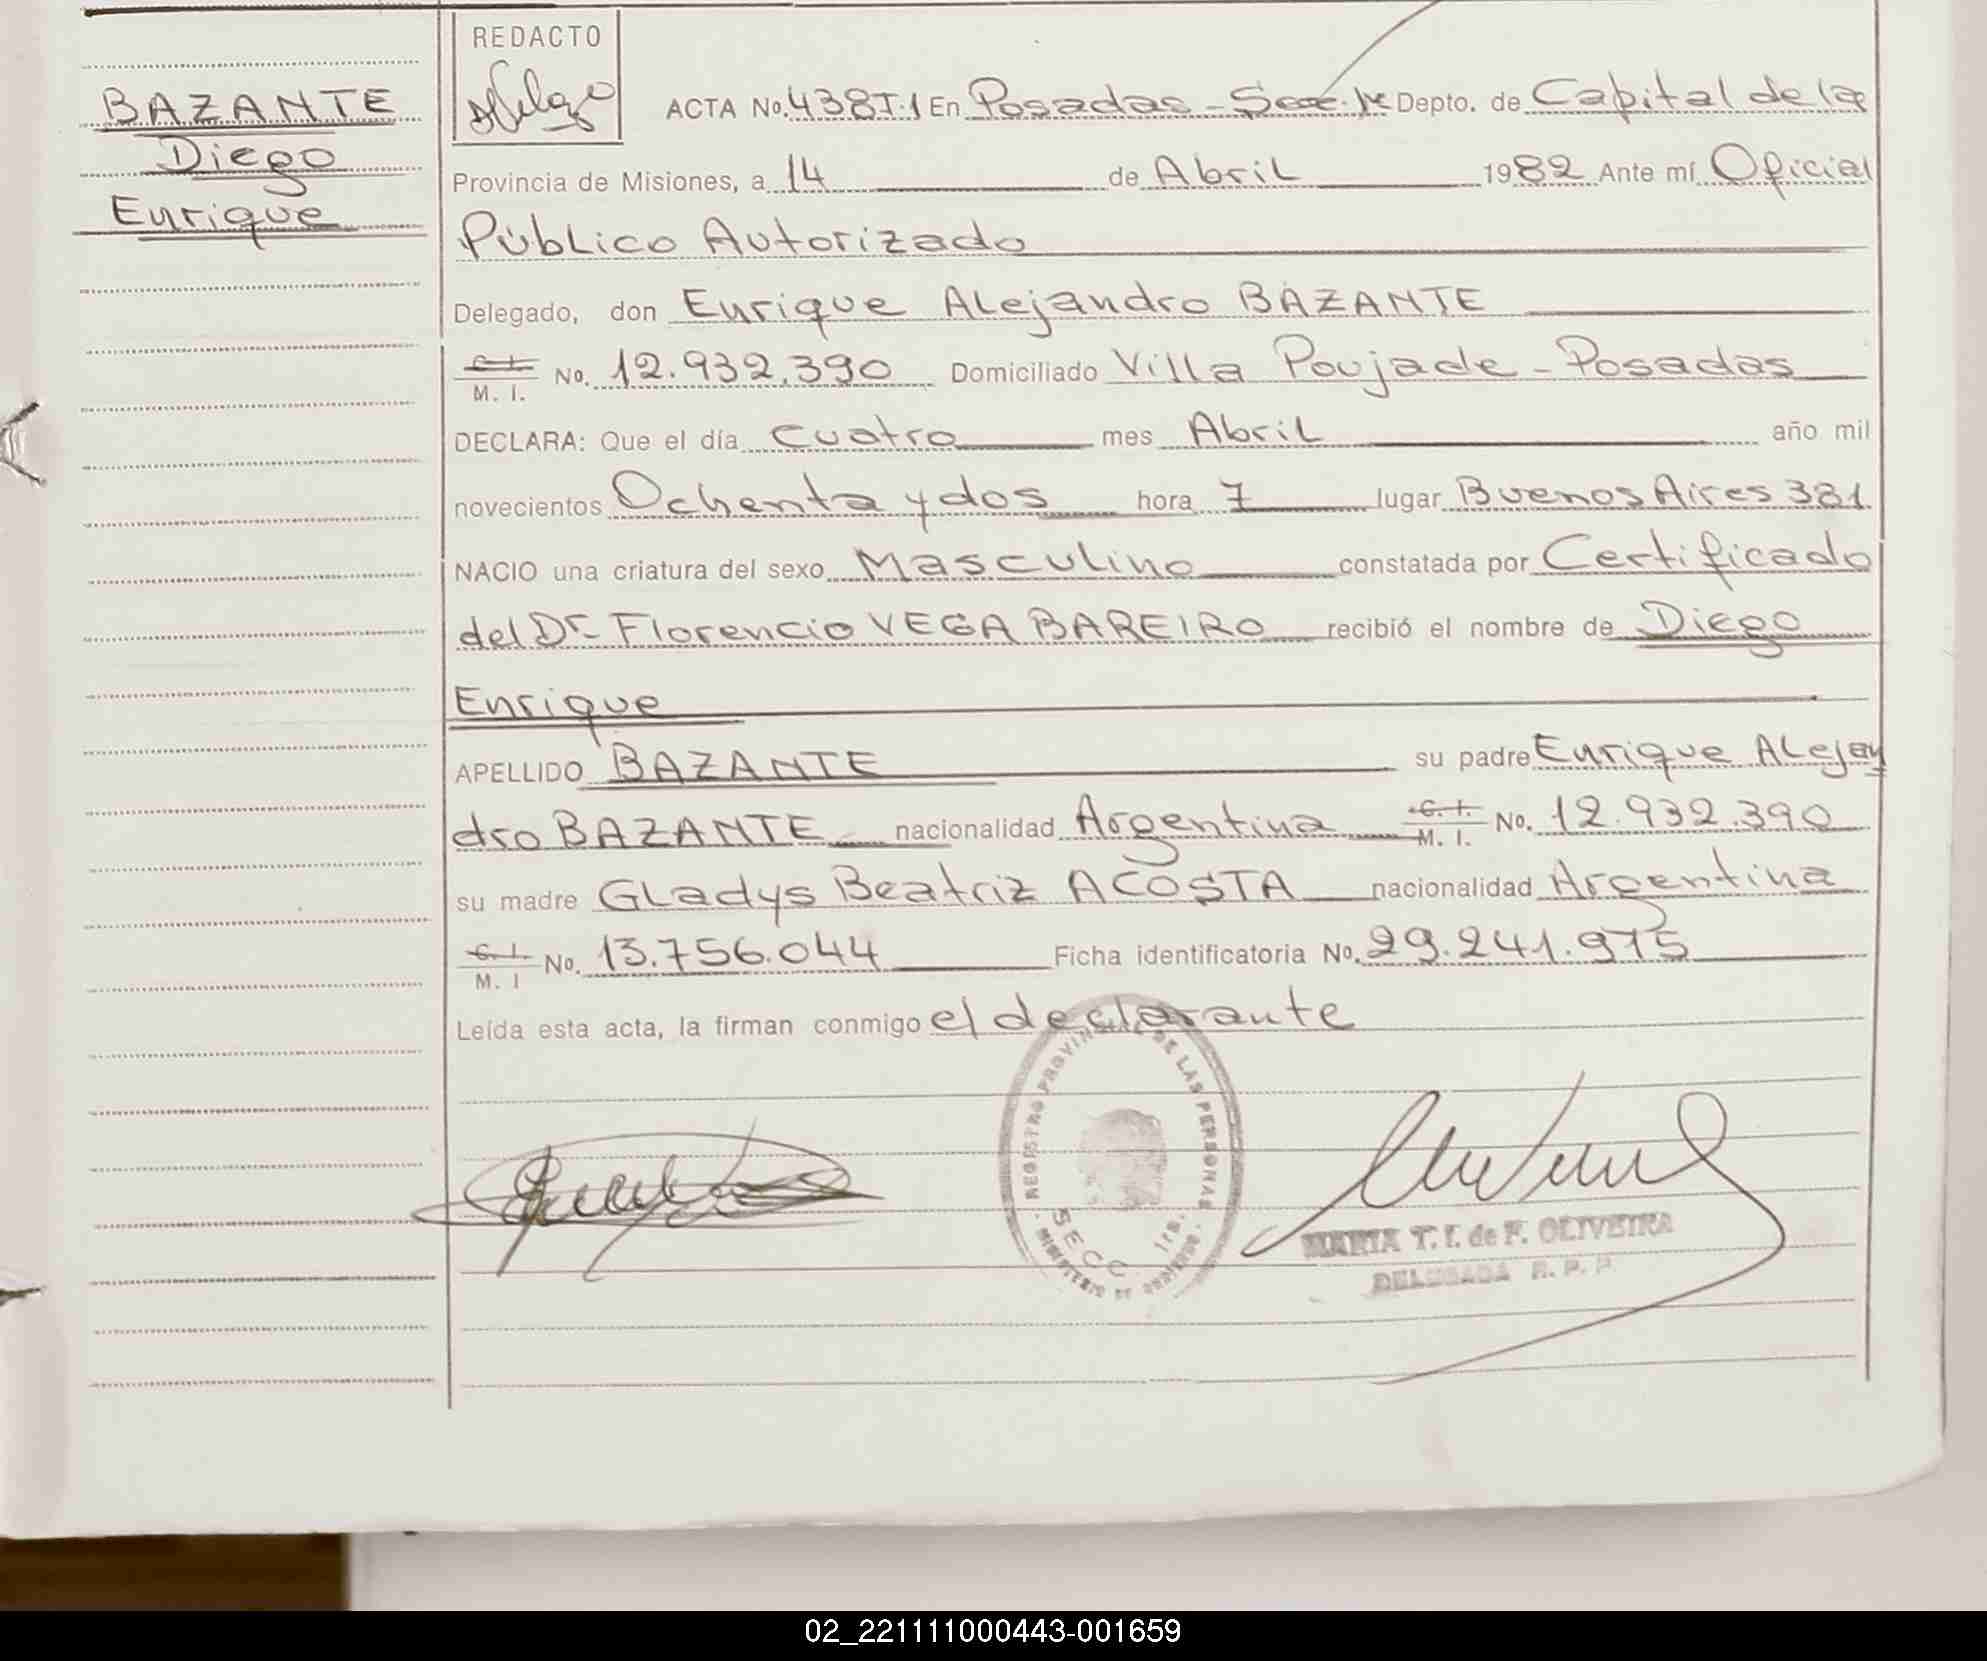 BAZANTE
Diego
Enrique
REDACTO
ACTA No. 438T.1 En Posadas - Secc. 1ra Depto. de Capital de la
Provincia de Misiones, a 14 de Abril 1982 Ante mí Oficial
Público Autorizado
Delegado, don Enrique Alejandro BAZANTE
C. I. / M. I. No. 12.932.390 Domiciliado Villa Poujade - Posadas
DECLARA: Que el día cuatro mes Abril año mil
novecientos Ochenta y dos hora 7 lugar Buenos Aires 381
NACIO una criatura del sexo Masculino constatada por Certificado
del Dr. Florencio VEGA BAREIRO recibió el nombre de Diego
Enrique
APELLIDO BAZANTE su padre Enrique Alejan
dro BAZANTE nacionalidad Argentina C. I. / M. I. No. 12.932.390
su madre Gladys Beatriz ACOSTA nacionalidad Argentina
C. I. / M. I No. 13.756.044 Ficha identificatoria No. 29.241.975
Leída esta acta, la firman conmigo el declarante
REGISTRO PROVINCIAL DE LAS PERSONAS
SECC. 1ra.
MINISTERIO DE GOBIERNO
MARIA T. I. de F. OLIVEIRA
DELEGADA R. P. P
02_221111000443-001659